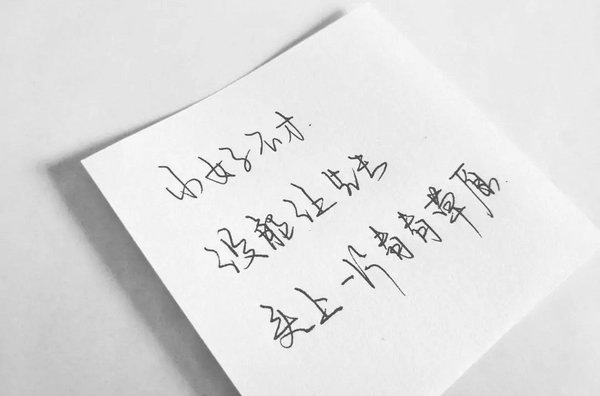 小女子不才.
没能让先生
爱上一片青青草原